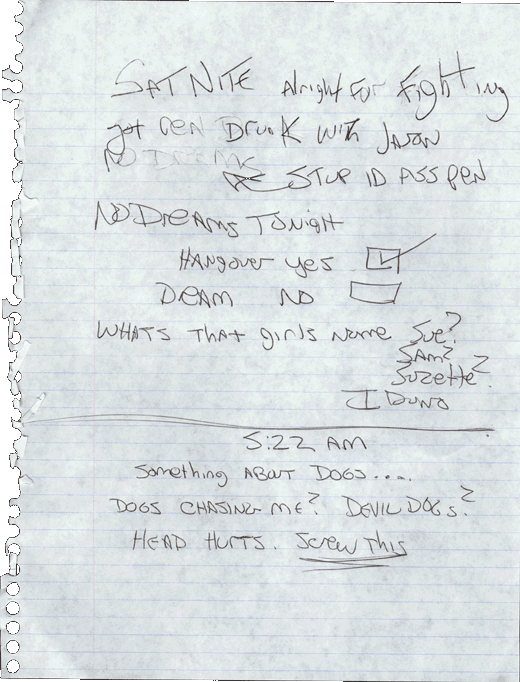 SAT NITE Alright FOR Fighting
got DEN DRUNK WITH JASON
NO DREAMS
STUP ID ASS PEN
NO DREAMS TONIGHT
HANGOVER YES
DREAM NO
WHATS THAT girls NAME SUE?
SAM?
SUZETTE?
I DUNO
5:22 AM
Something ABOUT DOGS....
DOGS CHASING ME? DEVIL DOGS?
HEAD HURTS. SCREW THIS